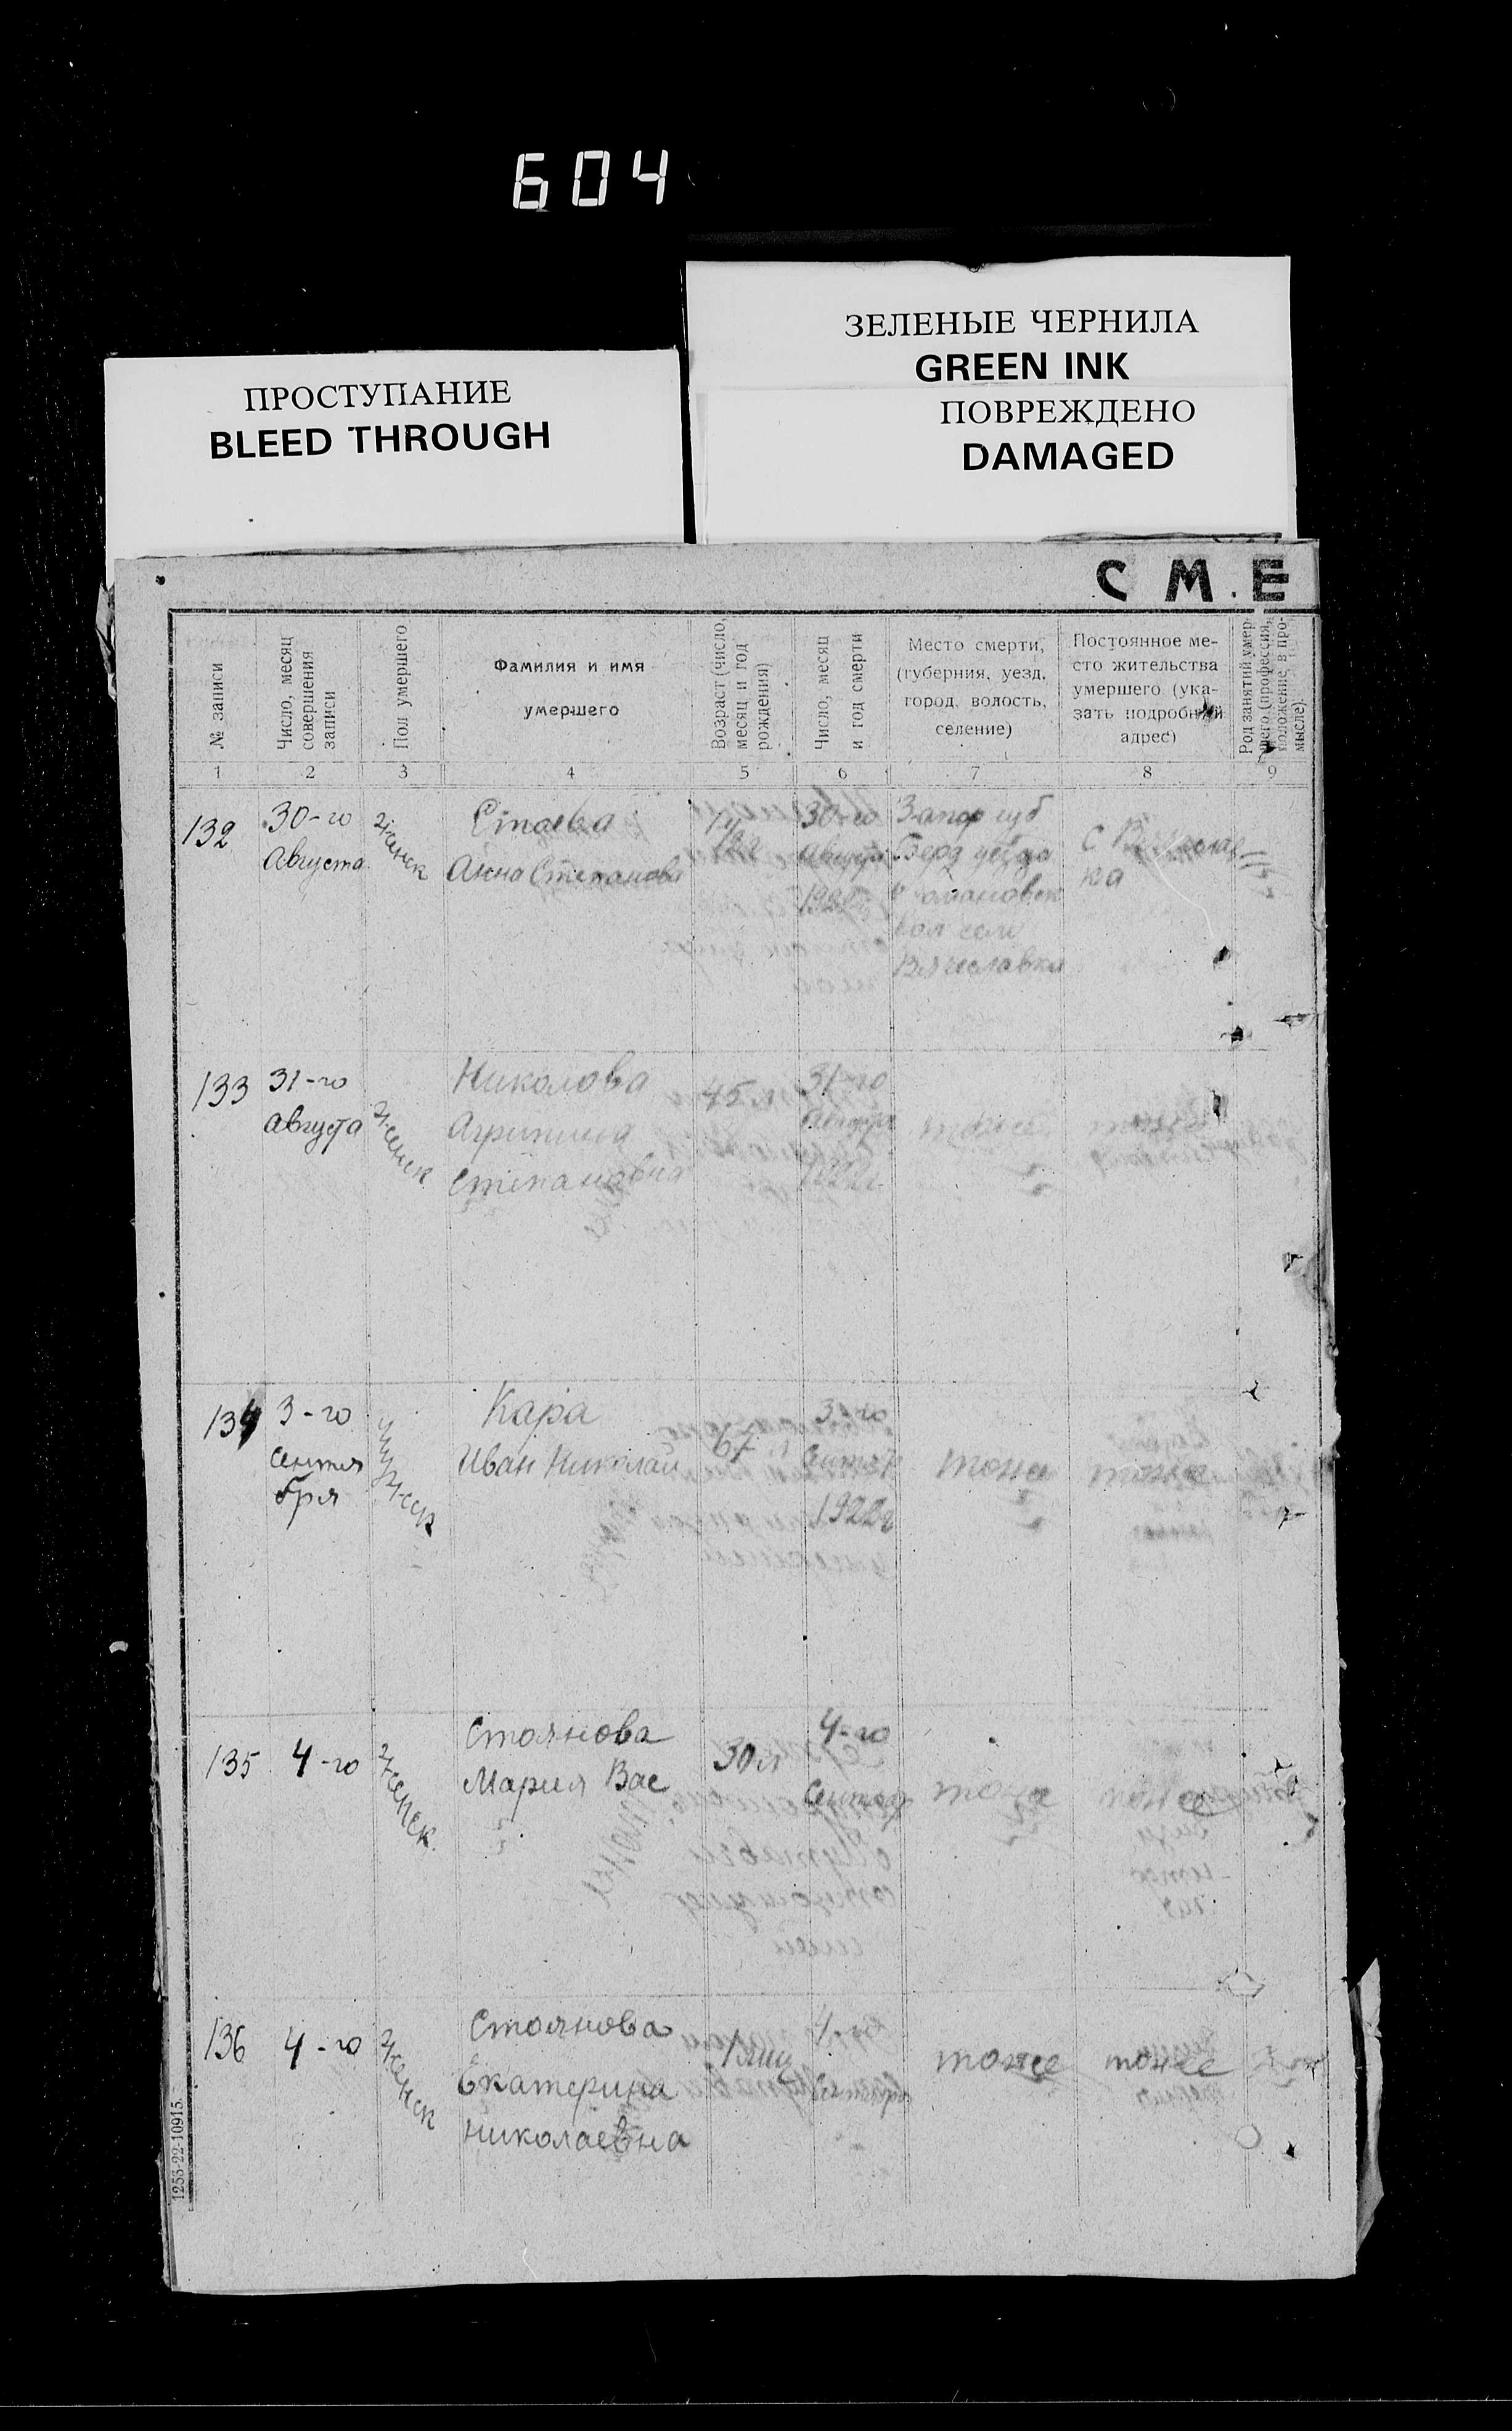 604
ЗЕЛЕНЫЕ ЧЕРНИЛА
GREEN INK
ПОВРЕЖДЕНО
DAMAGED
ПРОСТУПАНИЕ
BLEED THROUGH
С М Е
№ записи
Число, месяц
совершения
записи
Пол умершего
Фамилия и имя
умершего
Возраст (число,
месяц и год
рождения)
Число, месяц
и год смерти
Место смерти,
(губерния, уезд,
город, волость,
селение)
Постоянное ме-
сто жительства
умершего (ука-
зать подробный
адрес)
Род занятий умер-
шего (профессия,
положение в про-
мысле).
1 2 3 4 5 6 7 8 9
132
30-го
Августа
женск
Стаева
Анна Степанова
30-го
Августа
1922
Запор губ
Берд уезда
Романовск
вол села
Вячеславка
с
ка
133
31-го
Августа
женск
Николова
Агрипина
Степановна
45 л
31-го
1922г
тоже
134
3-го
сентя
бря
мужск
Кара
Иван Николай
67 л
3-го
Сентяб
1922г
тоже
тоже
135
4-го
женск.
Стоянова
Мария Вас
30 л
4-го
Сентяб
тоже
тоже
136
4-го
женск
Стоянова
Екатерина
Николаевна
4-го
Сентября
тоже
тоже
1253-22-10915.